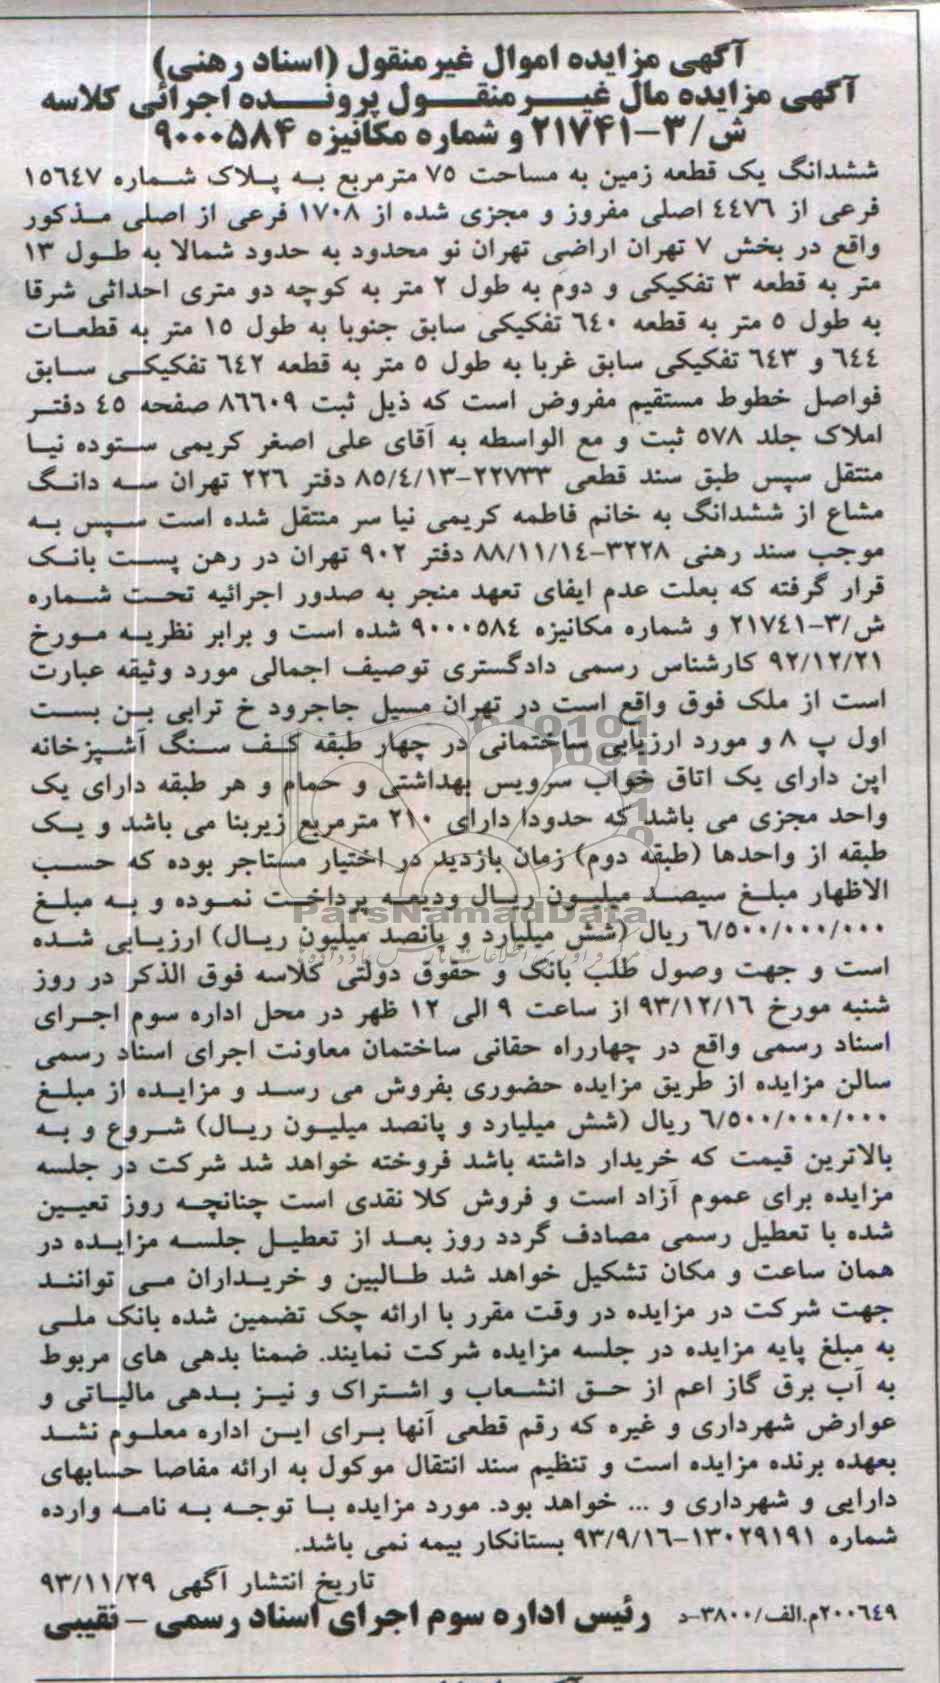 آگهی مزایده اموال غیرمنقول (اسناد رهنی)
آگهی مزایده مال غیرمنقول پرونده اجرائی کلاسه
ش/۳-۲۱۷۴۱ و شماره مکانیزه ۹۰۰۰۵۸۴
ششدانگ یک قطعه زمین به مساحت ۷۵ مترمربع به پلاک شماره ۱۵۶۴۷
فرعی از ۴۴۷۶ اصلی مفروز و مجزی شده از ۱۷۰۸ فرعی از اصلی مذکور
واقع در بخش ۷ تهران اراضی تهران نو محدود به حدود شمالا به طول ۱۳
متر به قطعه ۳ تفکیکی و دوم به طول ۲ متر به کوچه دو متری احداثی شرقا
به طول ۵ متر به قطعه ۶۴۰ تفکیکی سابق جنوبا به طول ۱۵ متر به قطعات
۶۴۴ و ۶۴۳ تفکیکی سابق غربا به طول ۵ متر به قطعه ۶۴۲ تفکیکی سابق
فواصل خطوط مستقیم مفروض است که ذیل ثبت ۸۶۶۰۹ صفحه ۴۵ دفتر
املاک جلد ۵۷۸ ثبت و مع الواسطه به آقای علی اصغر کریمی ستوده نیا
منتقل سپس طبق سند قطعی ۲۲۷۳۳-۸۵/۴/۱۳ دفتر ۲۲۶ تهران سه دانگ
مشاع از ششدانگ به خانم فاطمه کریمی نیا سر منتقل شده است سپس به
موجب سند رهنی ۳۲۲۸-۸۸/۱۱/۱۴ دفتر ۹۰۲ تهران در رهن پست بانک
قرار گرفته که بعلت عدم ایفای تعهد منجر به صدور اجرائیه تحت شماره
ش/۳-۲۱۷۴۱ و شماره مکانیزه ۹۰۰۰۵۸۴ شده است و برابر نظریه مورخ
۹۲/۱۲/۲۱ کارشناس رسمی دادگستری توصیف اجمالی مورد وثیقه عبارت
است از ملک فوق واقع است در تهران مسیل جاجرود خ ترابی بن بست
اول پ ۸ و مورد ارزیابی ساختمانی در چهار طبقه کف سنگ آشپزخانه
اپن دارای یک اتاق خواب سرویس بهداشتی و حمام و هر طبقه دارای یک
واحد مجزی می باشد که حدودا دارای ۲۱۰ مترمربع زیربنا می باشد و یک
طبقه از واحدها (طبقه دوم) زمان بازدید در اختیار مستاجر بوده که حسب
الاظهار مبلغ سیصد میلیون ریال ودیعه پرداخت نموده و به مبلغ
ParsNamadData
۶/۵۰۰/۰۰۰/۰۰۰ ریال (شش میلیارد و پانصد میلیون ریال) ارزیابی شده
است و جهت وصول طلب بانک و حقوق دولتی کلاسه فوق الذکر در روز
شنبه مورخ ۹۳/۱۲/۱۶ از ساعت ۹ الی ۱۲ ظهر در محل اداره سوم اجرای
اسناد رسمی واقع در چهارراه حقانی ساختمان معاونت اجرای اسناد رسمی
سالن مزایده از طریق مزایده حضوری بفروش می رسد و مزایده از مبلغ
۶/۵۰۰/۰۰۰/۰۰۰ ریال (شش میلیارد و پانصد میلیون ریال) شروع و به
بالاترین قیمت که خریدار داشته باشد فروخته خواهد شد شرکت در جلسه
مزایده برای عموم آزاد است و فروش کلا نقدی است چنانچه روز تعیین
شده با تعطیل رسمی مصادف گردد روز بعد از تعطیل جلسه مزایده در
همان ساعت و مکان تشکیل خواهد شد طالبین و خریداران می توانند
جهت شرکت در مزایده در وقت مقرر با ارائه چک تضمین شده بانک ملی
به مبلغ پایه مزایده در جلسه مزایده شرکت نمایند. ضمنا بدهی های مربوط
به آب برق گاز اعم از حق انشعاب و اشتراک و نیز بدهی مالیاتی و
عوارض شهرداری و غیره که رقم قطعی آنها برای این اداره معلوم نشد
بعهده برنده مزایده است و تنظیم سند انتقال موکول به ارائه مفاصا حسابهای
دارایی و شهرداری و ... خواهد بود. مورد مزایده با توجه به نامه وارده
شماره ۱۳۰۲۹۱۹۱-۹۳/۹/۱۶ بستانکار بیمه نمی باشد.
تاریخ انتشار آگهی ۹۳/۱۱/۲۹
۲۰۰۶۴۹م.الف/۳۸۰۰-د رئیس اداره سوم اجرای اسناد رسمی - نقیبی